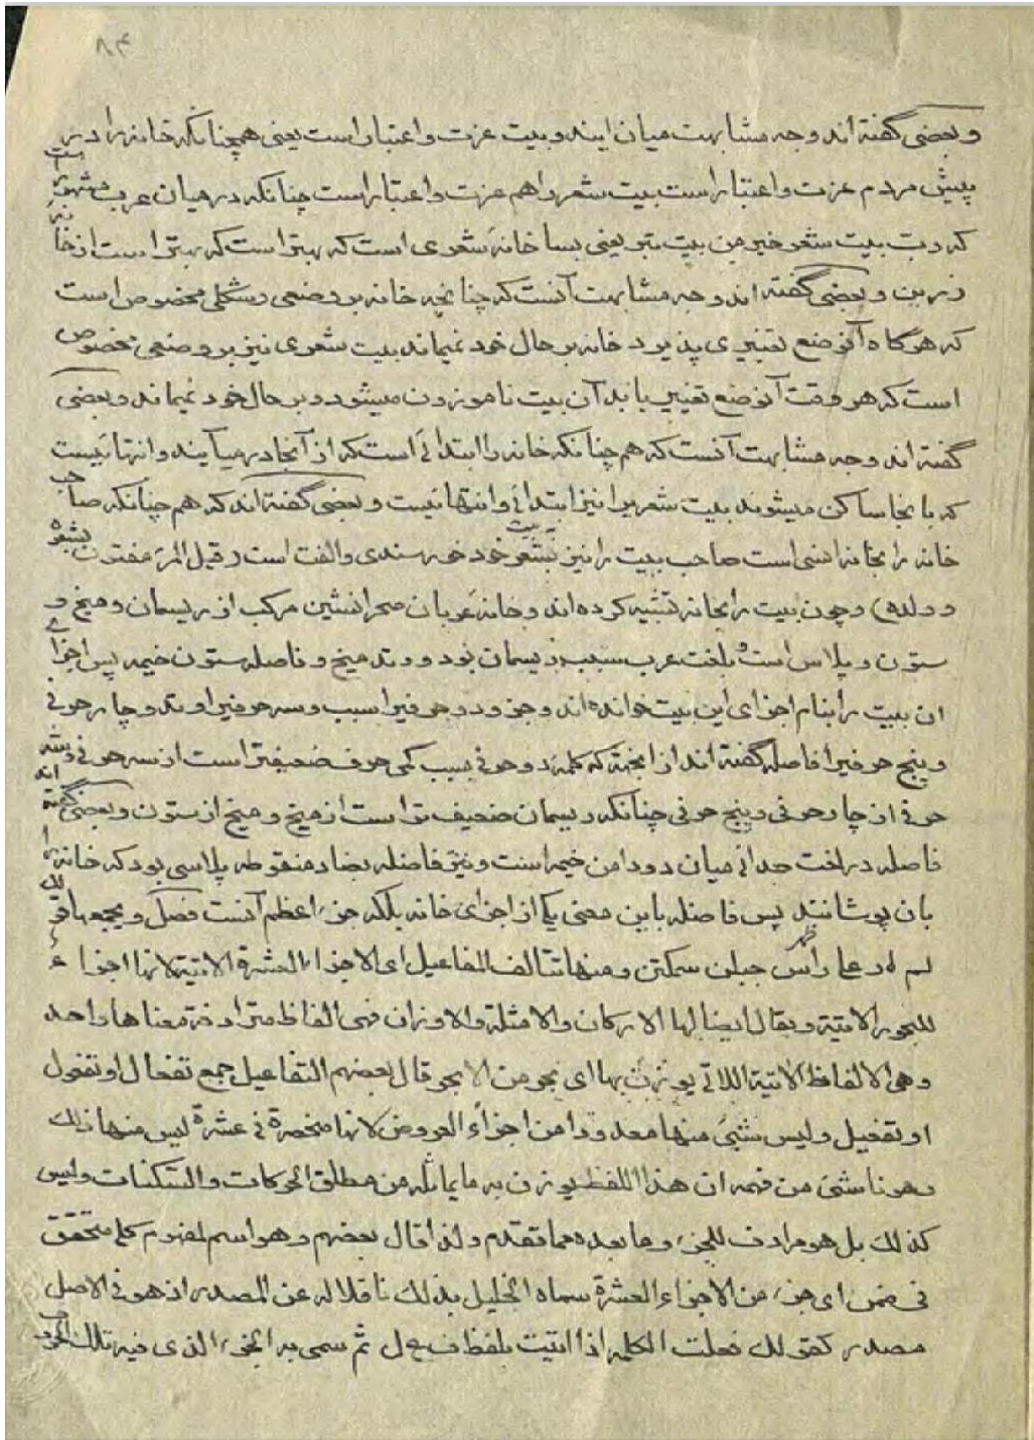 ۸۴
وبعضی گفته اند وجه مشابهت میان ایند وبیت عزت واعتبار است یعنی همچنانکه خانه را در
پیش مردم عزت واعتبار است بیت شعر را هم عزت واعتبار است چنانکه در میان عرب مشهور است
که رب بیت شعر خیر من بیت تبر یعنی بسا خانهٔ شعری است که بهتر است که بهتر است از خانهٔ
زرین وبعضی گفته اند وجه مشابهت آنست که چنانچه خانه بر وضعی وشکلی مخصوص است
که هرگاه آنوضع تغییری پذیرد خانه بر حال خود نمیماند بیت شعری نیز بر وضعی مخصوص
است که هر وقت آنوضع تغییر یابد آن بیت ناموزون میشود وبر حال خود نمیماند وبعضی
گفته اند وجه مشابهت آنست که هم چنانکه خانه را ابتدائی است که از آنجا در میآیند وانتهائیست
که بانجا ساکن میشوند بیت شعر را نیز ابتدائی وانتهائیست وبعضی گفته اند که هم چنانکه صاحب
خانه را بخانه انسی است صاحب بیت را نیز به بیت شعر خود خورسندی والفت است وقیل المرء مفتون بشعره
وولده) وچون بیت را بخانه تشبیه کرده اند وخانهٔ عربان صحرانشین مرکب از ریسمان ومیخ و
ستون وپلاس است وبلغت عرب سبب ریسمان بود ووتد میخ وفاصله ستون خیمه پس اجزای
ان بیت را بنام اجزای این بیت خوانده اند وجزو دو حرفیرا سبب وسه حرفیرا وتد وچار حرفی
وپنج حرفیرا فاصله گفته اند از انجهة که کلمهٔ دو حرفی بسبب کمی حرف ضعیفتر است از سه حرفی وسه
حرفی از چار حرفی وپنج حرفی چنانکه ریسمان ضعیف تر است از میخ ومیخ از ستون وبعضی گفته اند
فاصله در لغت جدائی میان دو دامن خیمه است ونیز فاضله بضاد منقوطه پلاسی بود که خانه را
بان پوشانند پس فاضله باین معنی یکی از اجزای خانه بلکه جزء اعظم آنست فصل ویجمعها قولک
لم ار علی ظهر جبلن سمکتن ومنها تتالف المفاعیل ای الاجزاء العشرة الاتیة لانها اجزاء
للبحور الاتیة ویقال ایضا لها الارکان والامثلة والاوزان فهی الفاظ مترادفة معناها واحد
وهی الالفاظ الاتیة اللاتی یوزن بها ای بحر من الابحر قال بعضهم التفاعیل جمع تفعال او تفعول
او تفعیل ولیس شیئ منها معدودا من اجزاء العروض لانها منحصرة فی عشرة لیس منها ذلک
وهو ناشئ من فهمه ان هذا اللفظ یوزن به ما یماثله من مطلق الحرکات والسکنات ولیس
کذلک بل هو مرادف للجزء وما بعده مما تقدم ولذا قال بعضهم وهو اسم لمفهوم کلی متحقق
فی ضمن ای جزء من الاجزاء العشرة سماه الخلیل بذلک ناقلا له عن المصدر اذ هو فی الاصل
مصدر کقولک فعلت الکلمه اذا اتیت بلفظ ف ع ل ثم سمی به الجزء الذی فیه تلک الحروف